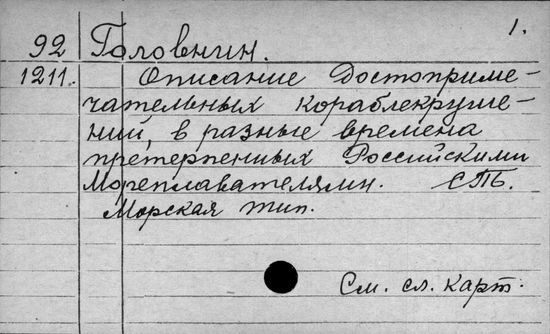 1.
92 Головнин.
1211. Описание Достоприме-
чательных кораблекруше-
ний, в разные времена
претерпенных Российскими
Мореплавателями. СПБ.
Морская тип.
См. сл. карт.